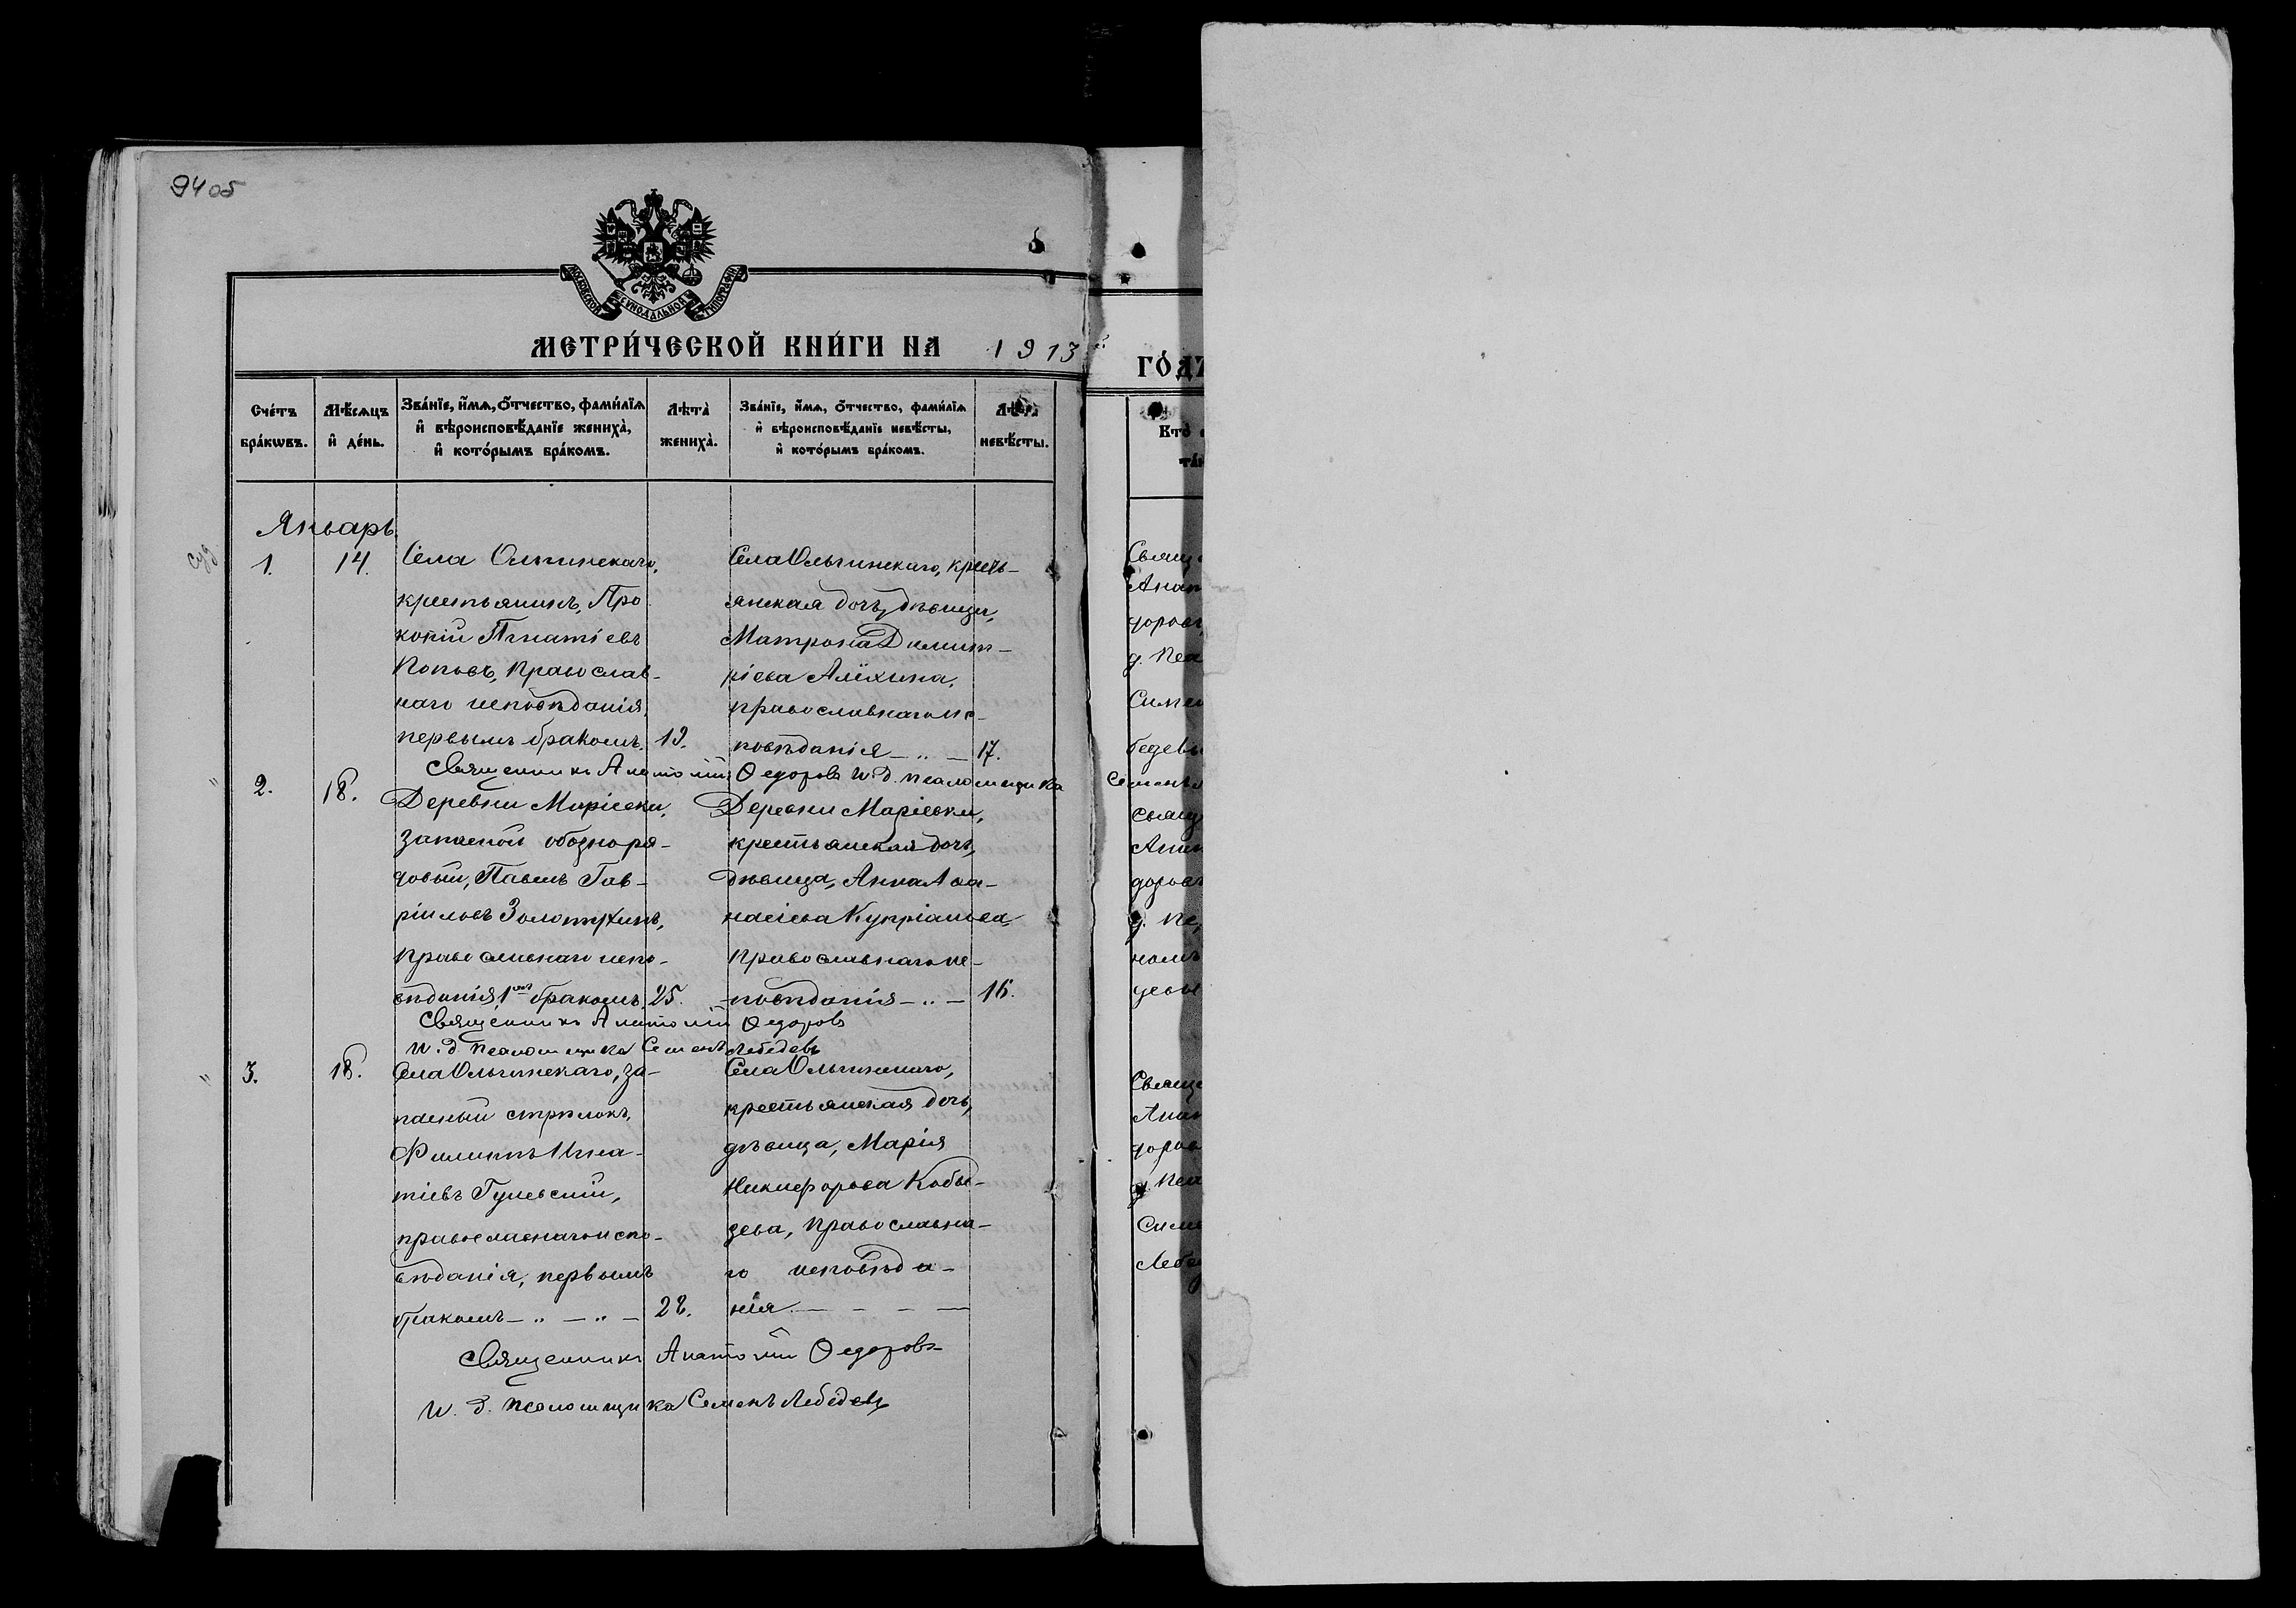 9405
МОСКОВСКОЙ СѴНОДАЛЬНОЙ ТИПОГРАФІИ
МЕТРИ́ЧЕСКОЙ КНИ́ГИ НА 1913
ГО́ДЪ
Сче́тъ бра́кѡвъ.
Мѣ́сѧцъ и҆ де́нь.
Зва́нїе, и҆́мѧ, ѻ҆́тчество, фами́лїѧ и҆ вѣроисповѣ́данїе женихà, и҆ кото́рымъ бра́комъ.
Лѣтà женихà.
Зва́нїе, и҆́мѧ, ѻ҆́тчество, фами́лїѧ и҆ вѣроисповѣ́данїе невѣ́сты, и҆ кото́рымъ бра́комъ.
Лѣтà невѣ́сты.
Кто̀
Январь
1. 14.
Села Ольгинскаго,
крестьянинъ, Про
копій Игнатіевъ
Поповъ, православ-
наго исповѣданія,
первымъ бракомъ. 19.
Села Ольгинскаго, кресть-
янская дочь, дѣвица,
Матрона Димит-
ріева Алёхина,
православнаго ис-
повѣданія — „ — 17.
Священникъ Анатолій Ѳедоровъ И. д. псаломщика Семенъ
2. 18.
Деревни Маріевки,
запасной обозноря-
довый, Павелъ Гав-
ріиловъ Золотухинъ,
православнаго испо-
вѣданія 1ымъ бракомъ, 25.
Деревни Маріевки,
крестьянская дочь,
дѣвица, Анна Аѳа-
насіева Купріанова,
православнаго ис-
повѣданія — „ — 16.
Священникъ Анатолій Ѳедоровъ
И. д. псаломщика Семенъ Лебедевъ
3. 18.
Села Ольгинскаго, за-
пасный стрѣлокъ,
Филиппъ Игна-
тіевъ Гулевскій,
православнаго испо-
вѣданія, первымъ
бракомъ — „ — „ — 28.
Села Ольгинскаго,
крестьянская дочь,
дѣвица, Марія
Никифорова Кобы-
зева, православна-
го исповѣда-
нія — — — —
Священникъ Анатолій Ѳедоровъ
И. д. псаломщика Семенъ Лебедевъ